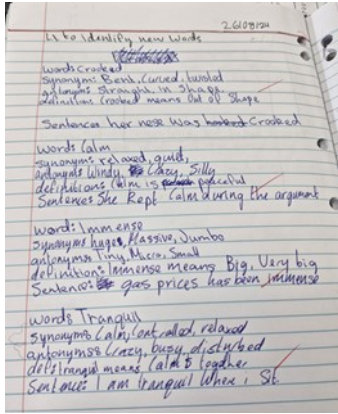 26/08/24
LI to identify new words
word: Crooked
Synonym: Bent, Curved, twisted
antonyms: Straight, in Shape
definition: Crooked means Out of Shape
Sentence: her nose was Crooked
word: Calm
synonyms: relaxed, quiet,
antonyms: Windy, Crazy, Silly
definition: Calm is peaceful
Sentence: She Kept Calm during the argument
word: Immense
Synonyms: huge, Massive, Jumbo
antonyms: Tiny, Micro, Small
definition: Immense means Big, Very big
Sentence: gas prices has been immense
words Tranquil
Synonyms Calm, Controlled, relaxed
antonyms: Crazy, busy, disturbed
def: tranquil means, Calm & together
Sentence: I am tranquil When i Sit.